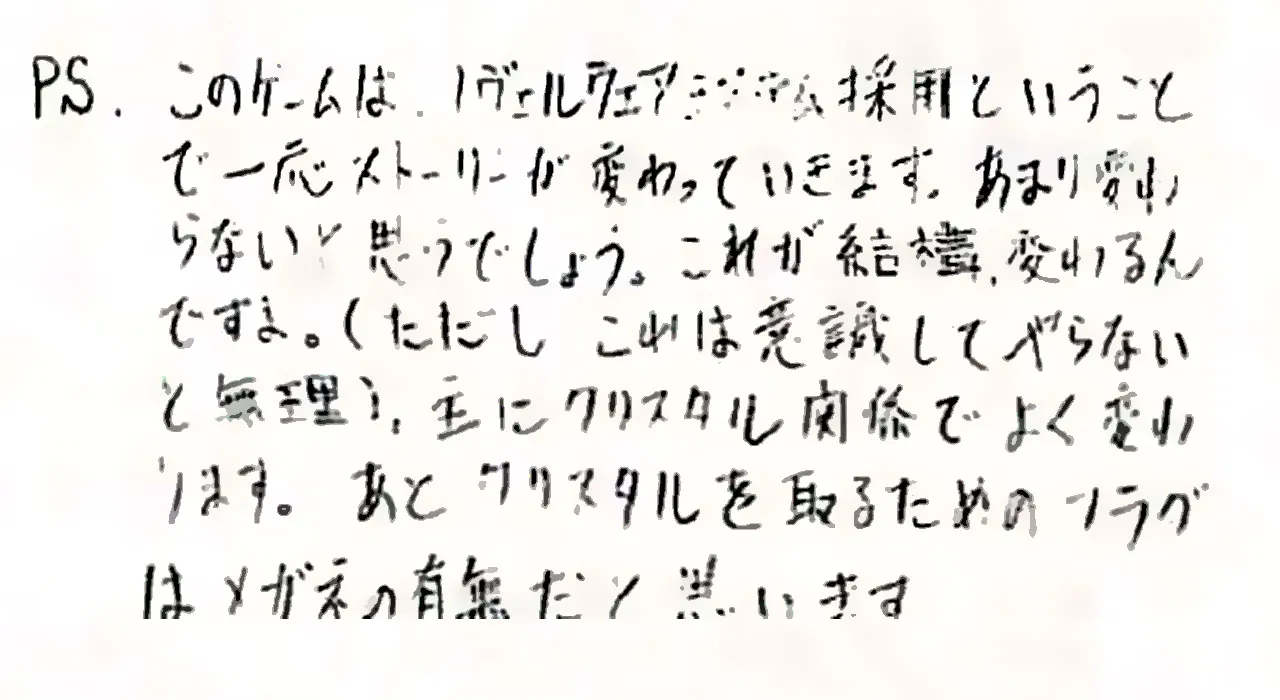 PS. このゲームは、ノヴェルウェアシステム採用ということ
で一応ストーリーが変わっていきます。あまり変わ
らないと思うでしょう。これが結構、変わるん
ですよ。(ただし これは意識してやらない
と無理)、主にクリスタル関係でよく変わ
ります。あとクリスタルを取るためのフラグ
はメガネの有無だと思います